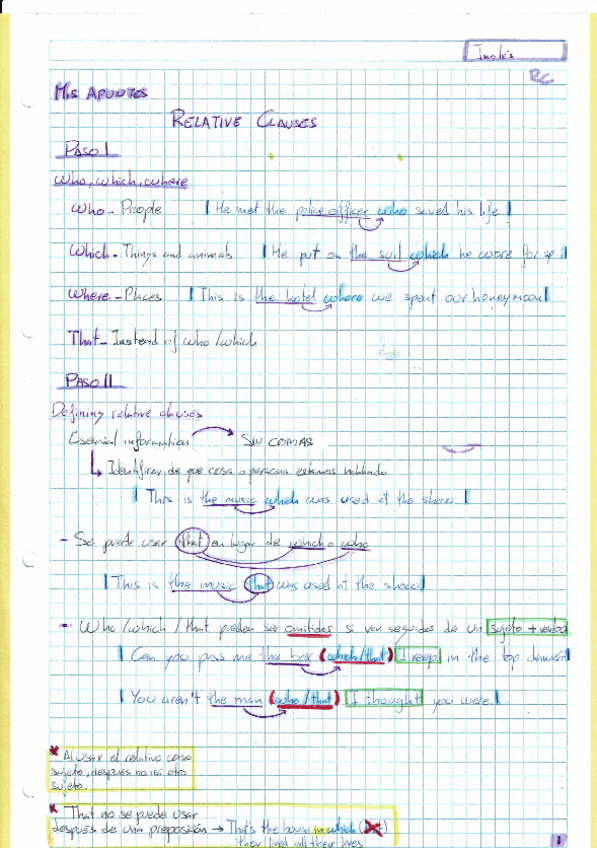 Inglés
RC
Mis APUNTES
RELATIVE CLAUSES
PASO I
Who, which, where
Who - People | He met the police officer who saved his life |
Which - Things and animals | He put on the suit which he wore for sp |
Where - Places | This is the hotel where we spent our honeymoon |
That - Instead of who/which
PASO II
Defining relative clauses
Esencial information → SIN COMAS
Identificar de que cosa o persona estamos hablando
| This is the music which was used at the show |
- Se puede usar that en lugar de which o who
| This is the music that was used at the show |
- Who/which/that pueden ser omitidos si van seguidos de un sujeto + verbo
| Can you pass me the box (which/that) I keep in the top drawer |
| You aren't the man (who/that) I thought you were. |
* Al usar el relativo como
sujeto, después no hay otro
sujeto.
* That no se puede usar
después de una preposición → That's the house in which (that)
they lived all their lives
1